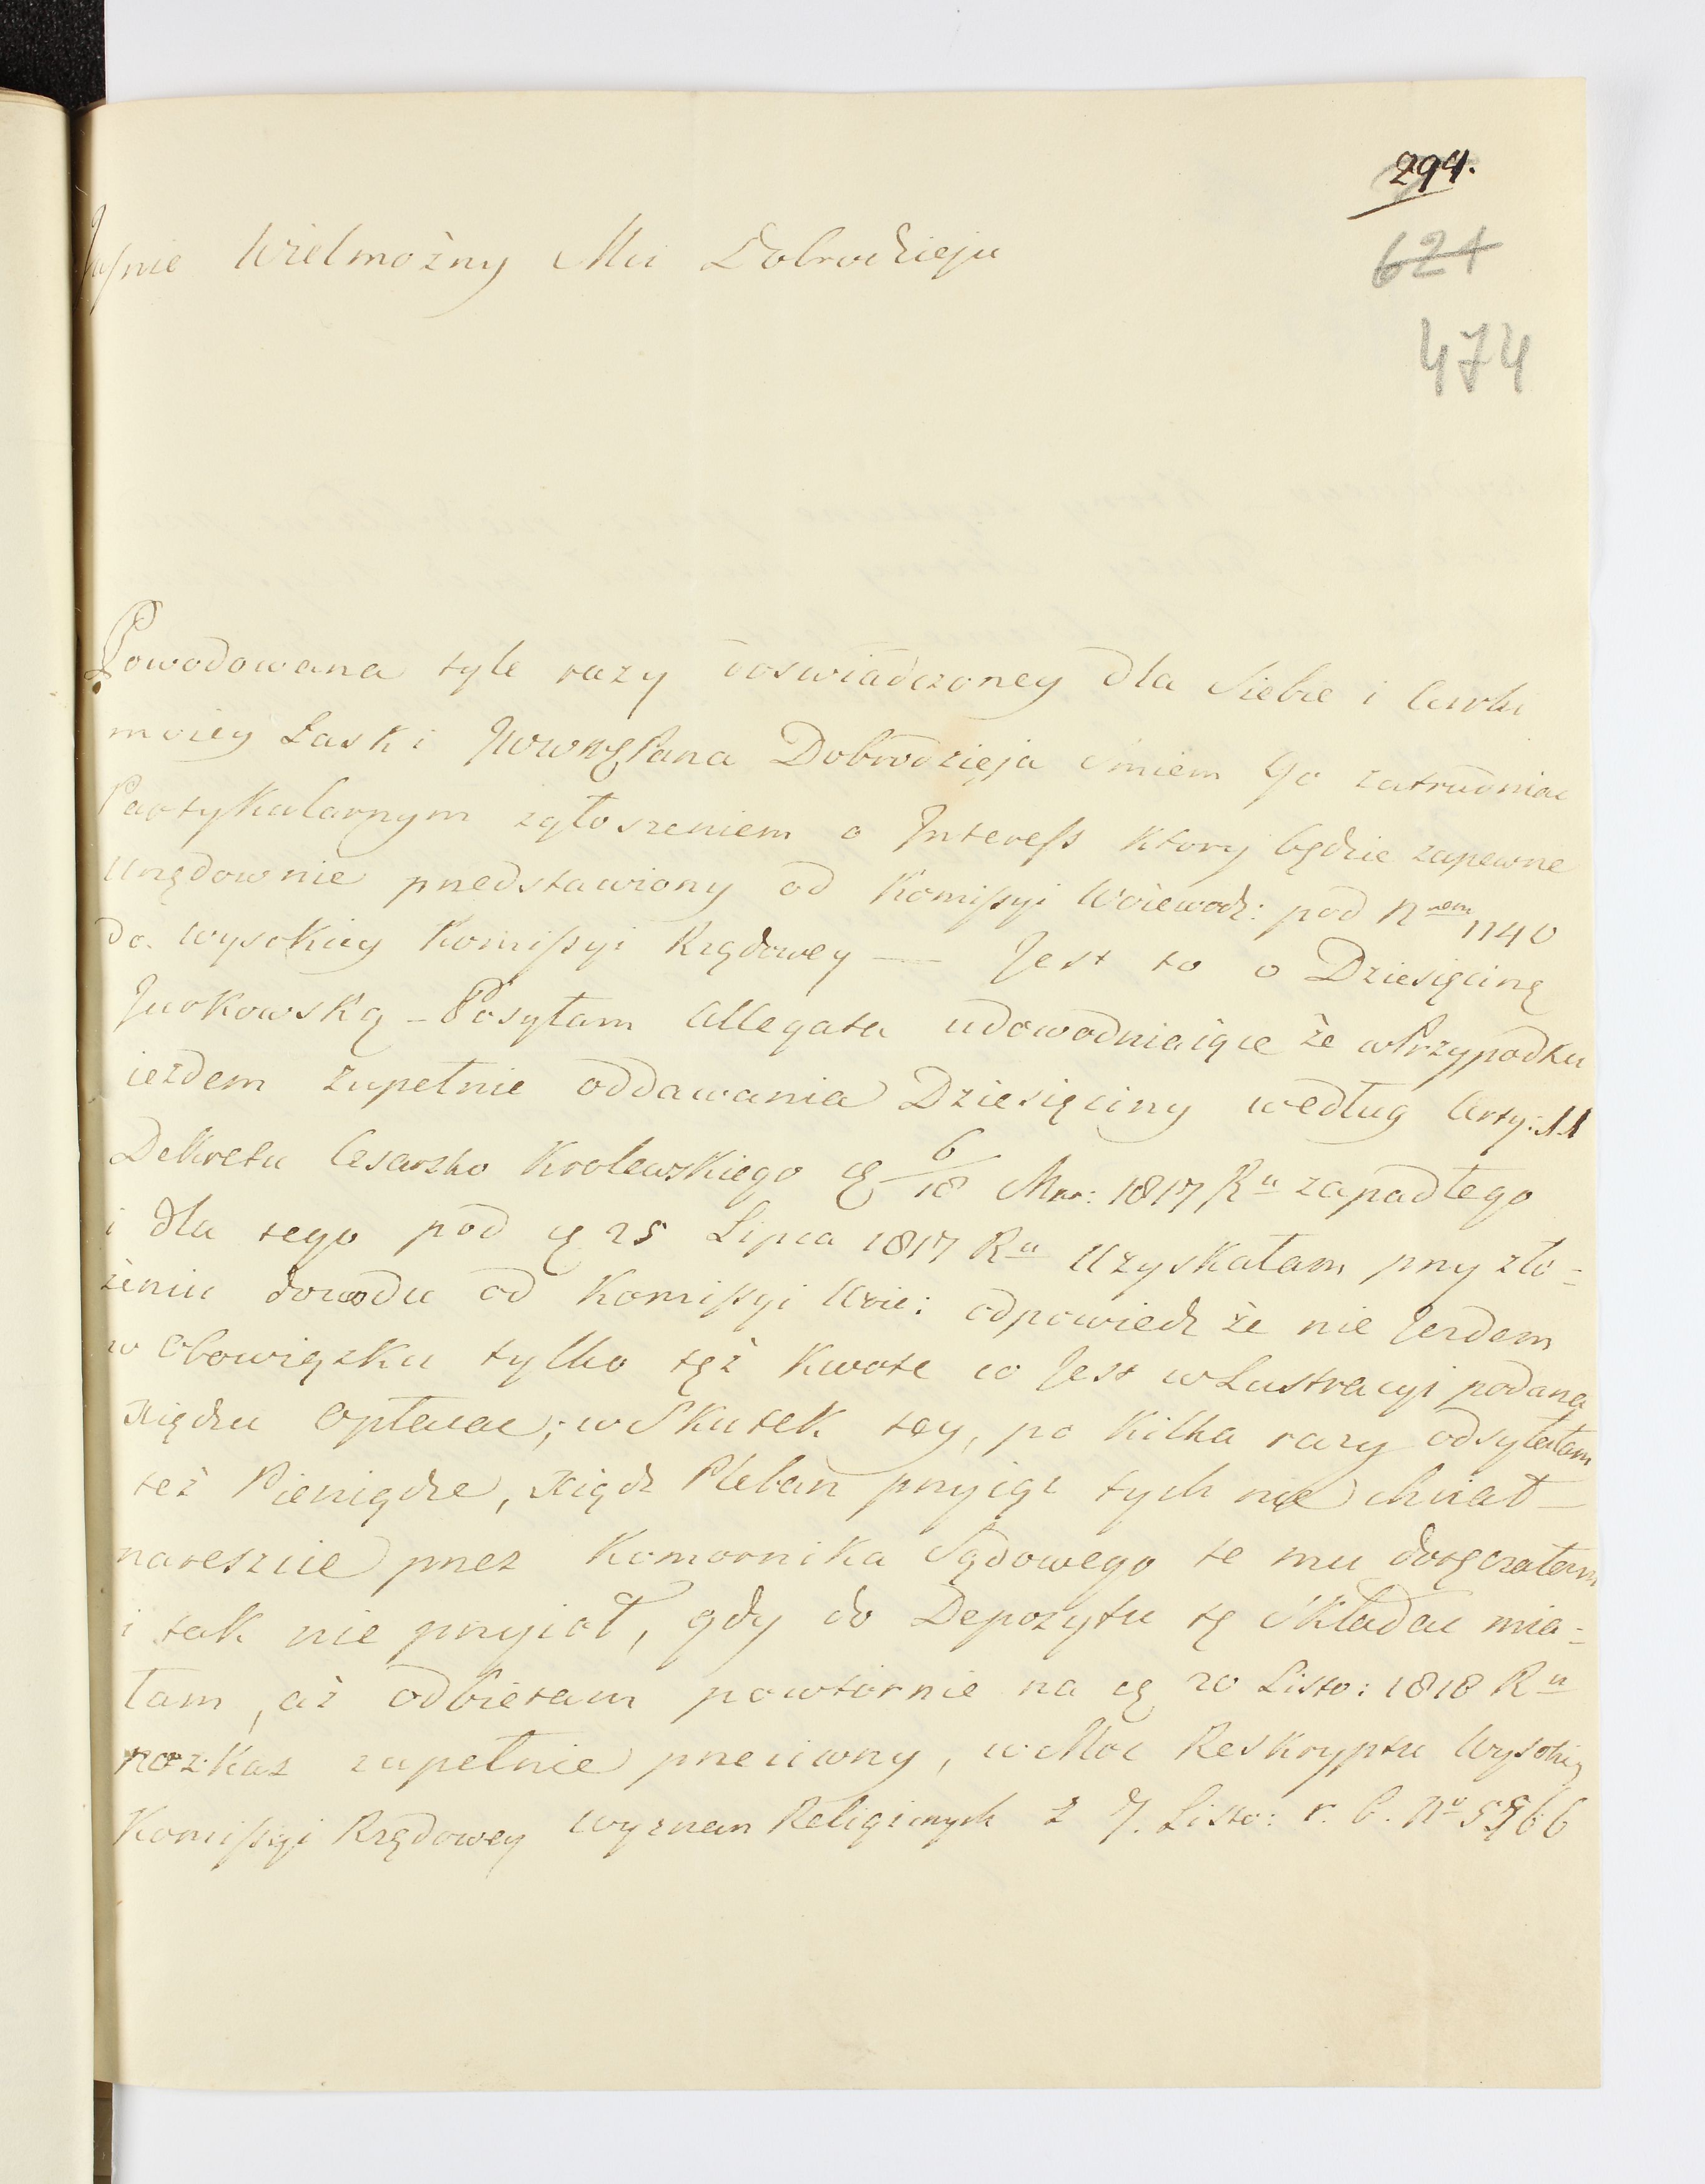 294.
621
474
Jaśnie Wielmożny Mci Dobrodzieju
Powodowana tyle razy doswiadczoney dla Siebie i Curki
moiey Łaski JWWgPana Dobrodzieja śmiem Go zatrudniac
Partykularnym zgłoszeniem o Interess ktory będzie zapewne
Urzędownie przedstawiony od Komissyi Woiewodz: pod Nrem 1140
do Wysokiey Komissyi Rządowey — Jest to o Dziesięcinę
Jurkowską – Posyłam Allegata udowodniaiące że w Przypadku
iezdem zupełnie oddawania Dziesięciny według Arty: 11
Dekretu Cesarsko Krolewskiego d 6/18 Mar: 1817 Ru zapadłego
i dla tego pod d 25 Lipca 1817 Ru Uzyskałam przy zło=
żeniu dowodu od Komissyi Woie: odpowiedz że nie Jezdem
w Obowiązku tylko tęż Kwote co Jest w Lustracyi podana
Xiędzu Opłacac; w Skutek tey, po kilka razy odsyłałam
też Pieniądze, Xiądz Pleban przyiąc tych nie chciał —
nareszcie przez Komornika Sądowego te mu doręczałam
i tak nie przyioł, gdy do Depozytu tę Składac mia=
łam, aż odbieram powtórnie na d 20 Listo: 1818 Ru
rozkaz zupełnie przeciwny, w Moc Reskryptu Wysokiey
Komissyi Rządowey Wyznan Religijnych z 7. Listo: r. b. No 5966